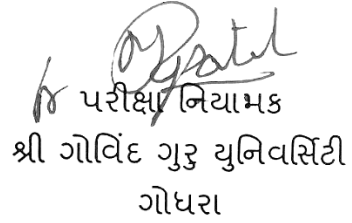 પરીક્ષા નિયામક
શ્રી ગોવિંદ ગુરુ યુનિવર્સિટી
ગોધરા